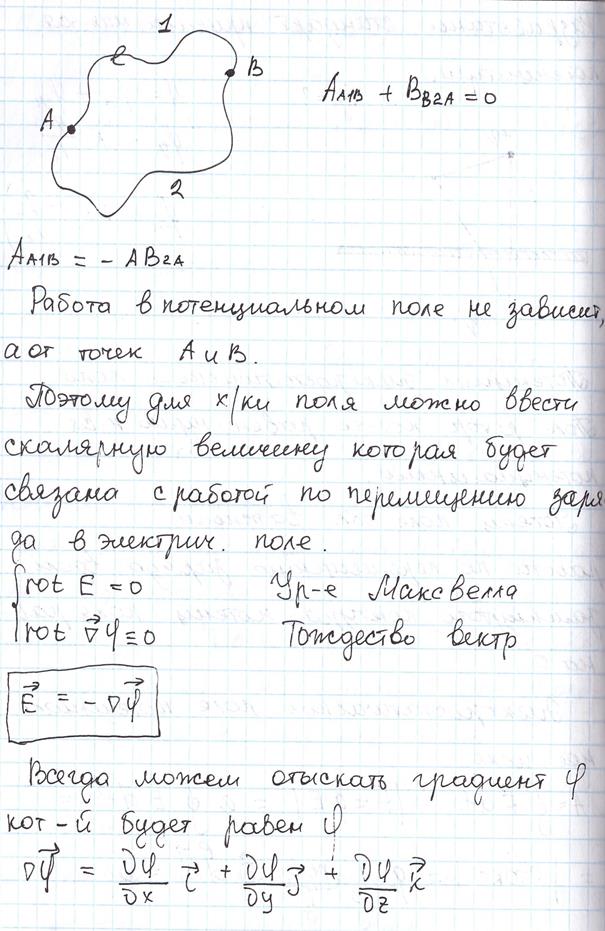 1
ℓ
B
A
A_A1B + B_B2A = 0
2
A_A1B = - A_B2A
Работа в потенциальном поле не зависит,
а от точек A и B.
Поэтому для х/ки поля можно ввести
скалярную величину которая будет
связана с работой по перемещению заря
да в электрич. поле.
rot E = 0 Ур-е Максвелла
rot ∇⃗φ ≡ 0 Тождество вектр
E⃗ = - ∇φ⃗
Всегда можем отыскать градиент φ
кот-й будет равен φ
∇φ⃗ = ∂φ/∂x i⃗ + ∂φ/∂y j⃗ + ∂φ/∂z k⃗